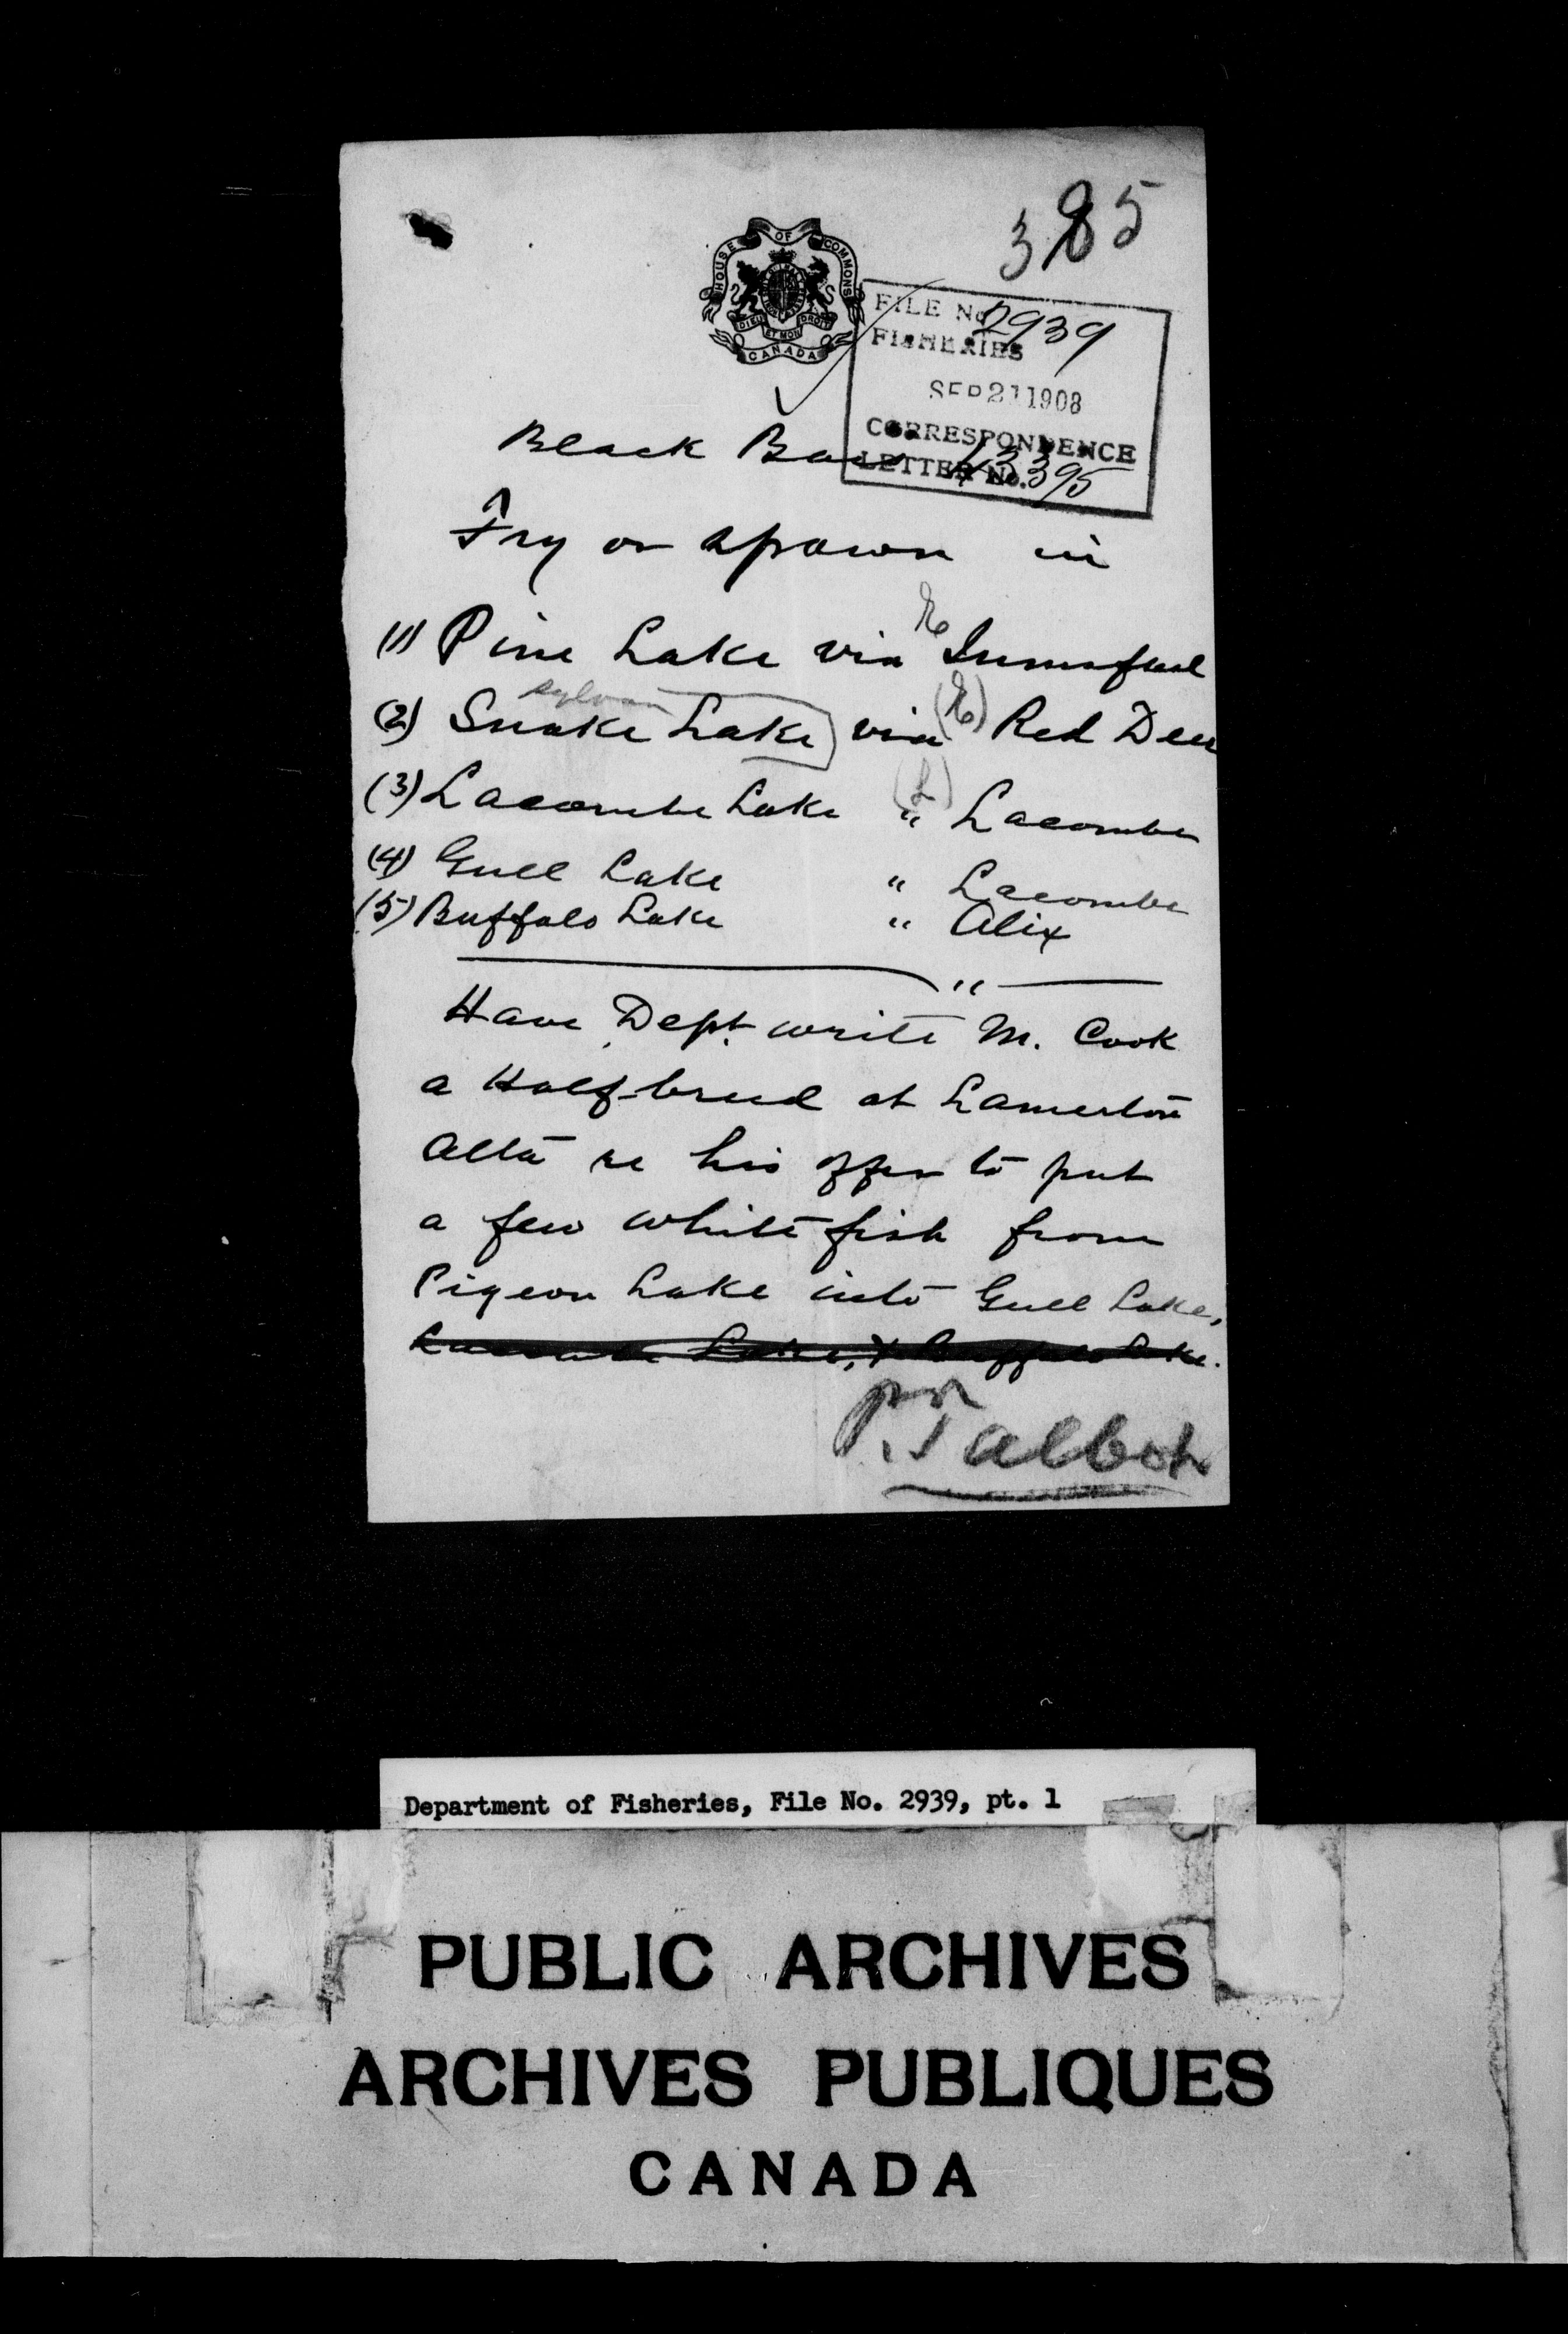 385
HOUSE OF COMMONS
DIEU ET MON DROIT
CANADA
FILE No. 2939
FISHERIES
SEP 21 1908
CORRESPONDENCE
LETTER No. 13395
Black Bass
Fry or spawn in
(1) Pine Lake via Innisfail
sylvan
(2) Snake Lake via Red Deer
(3) Lacombe Lake " Lacombe
(4) Gull Lake " Lacombe
(5) Buffalo Lake " Alix
"
Have Dept. write M. Cook
a Half-breed at Lamerton
Alta re his offer to put
a few white fish from
Pigeon Lake into Gull Lake,
Lacombe Lake, & Buffalo Lake.
P. Talbot
Department of Fisheries, File No. 2939, pt. 1
PUBLIC ARCHIVES
ARCHIVES PUBLIQUES
CANADA